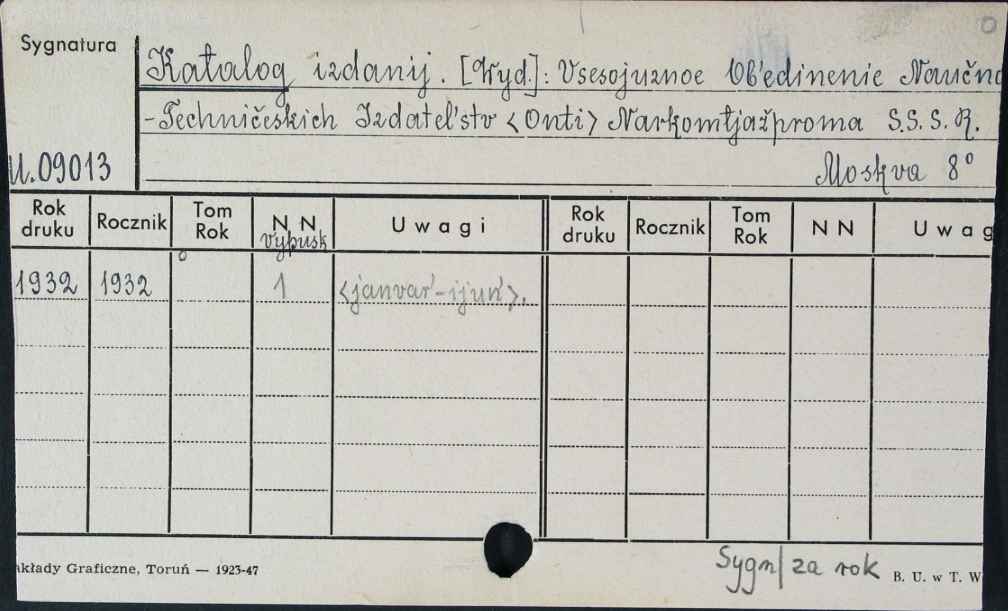 0
Sygnatura
Katalog izdanij. [Wyd.]: Vsesojuznoe Ob'edinenie Naučno
-Techničeskich Izdatel'stv <Onti> Narkomtjažproma S.S.S.R.
U.09013 Moskva 8°
Rok druku Rocznik Tom Rok NN vypusk Uwagi Rok druku Rocznik Tom Rok NN Uwag
1932 1932 1 <janvar'-ijun'>.
akłady Graficzne, Toruń — 1923-47
Sygn/za rok
B. U. w T. W